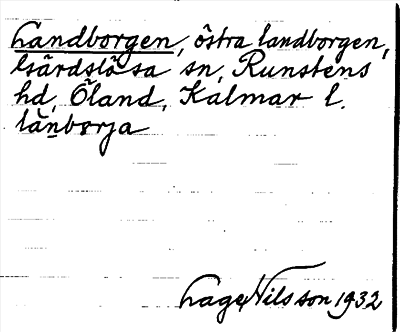 Landborgen, östra landborgen,
Gärdslösa sn, Runstens
hd, Öland, Kalmar l.
länborja
Lage Nilsson 1932